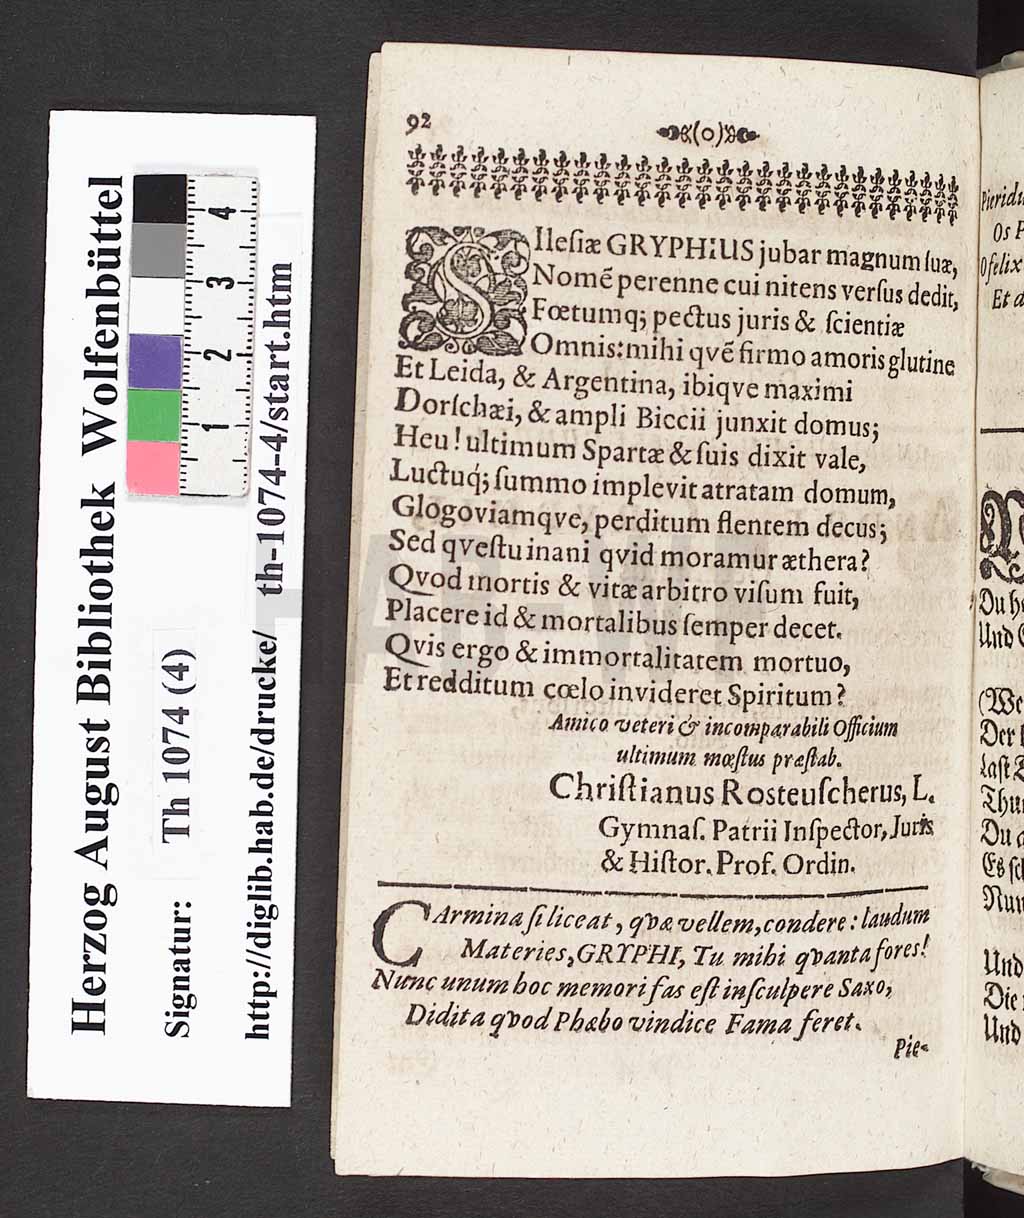 Herzog August Bibliothek Wolfenbüttel
Signatur: Th 1074 (4)
http://diglib.hab.de/drucke/ th-1074-4/start.htm
1 2 3 4
92
(o)
SIleſiæ GRYPHIUS jubar magnum ſuæ,
Nomẽ perenne cui nitens verſus dedit,
Fœtumq; pectus juris & ſcientiæ
Omnis: mihi qvẽ firmo amoris glutine
Et Leida, & Argentina, ibiqve maximi
Dorſchæi, & ampli Biccii junxit domus;
Heu! ultimum Spartæ & ſuis dixit vale,
Luctuq́; ſummo implevit atratam domum,
Glogoviamqve, perditum flentem decus;
Sed qveſtu inani qvid moramur æthera?
Qvod mortis & vitæ arbitro viſum fuit,
Placere id & mortalibus ſemper decet.
Qvis ergo & immortalitatem mortuo,
Et redditum cœlo invideret Spiritum?
Amico veteri & incomparabili Officium
ultimum mœſtus præſtab.
Chriſtianus Roſteuſcherus, L.
Gymnaſ. Patrii Inſpector, Juris
& Hiſtor. Prof. Ordin.
CArmina ſi liceat, qvæ vellem, condere: laudum
Materies, GRYPHI, Tu mihi qvanta fores!
Nunc unum hoc memori fas eſt inſculpere Saxo,
Didita qvod Phœbo vindice Fama feret.
Pie-
Os P
O felix
Et d
Du h
Und
(We
Der
Laſt
Thu
Du
Es ſc
Nun
Und
Die
Und